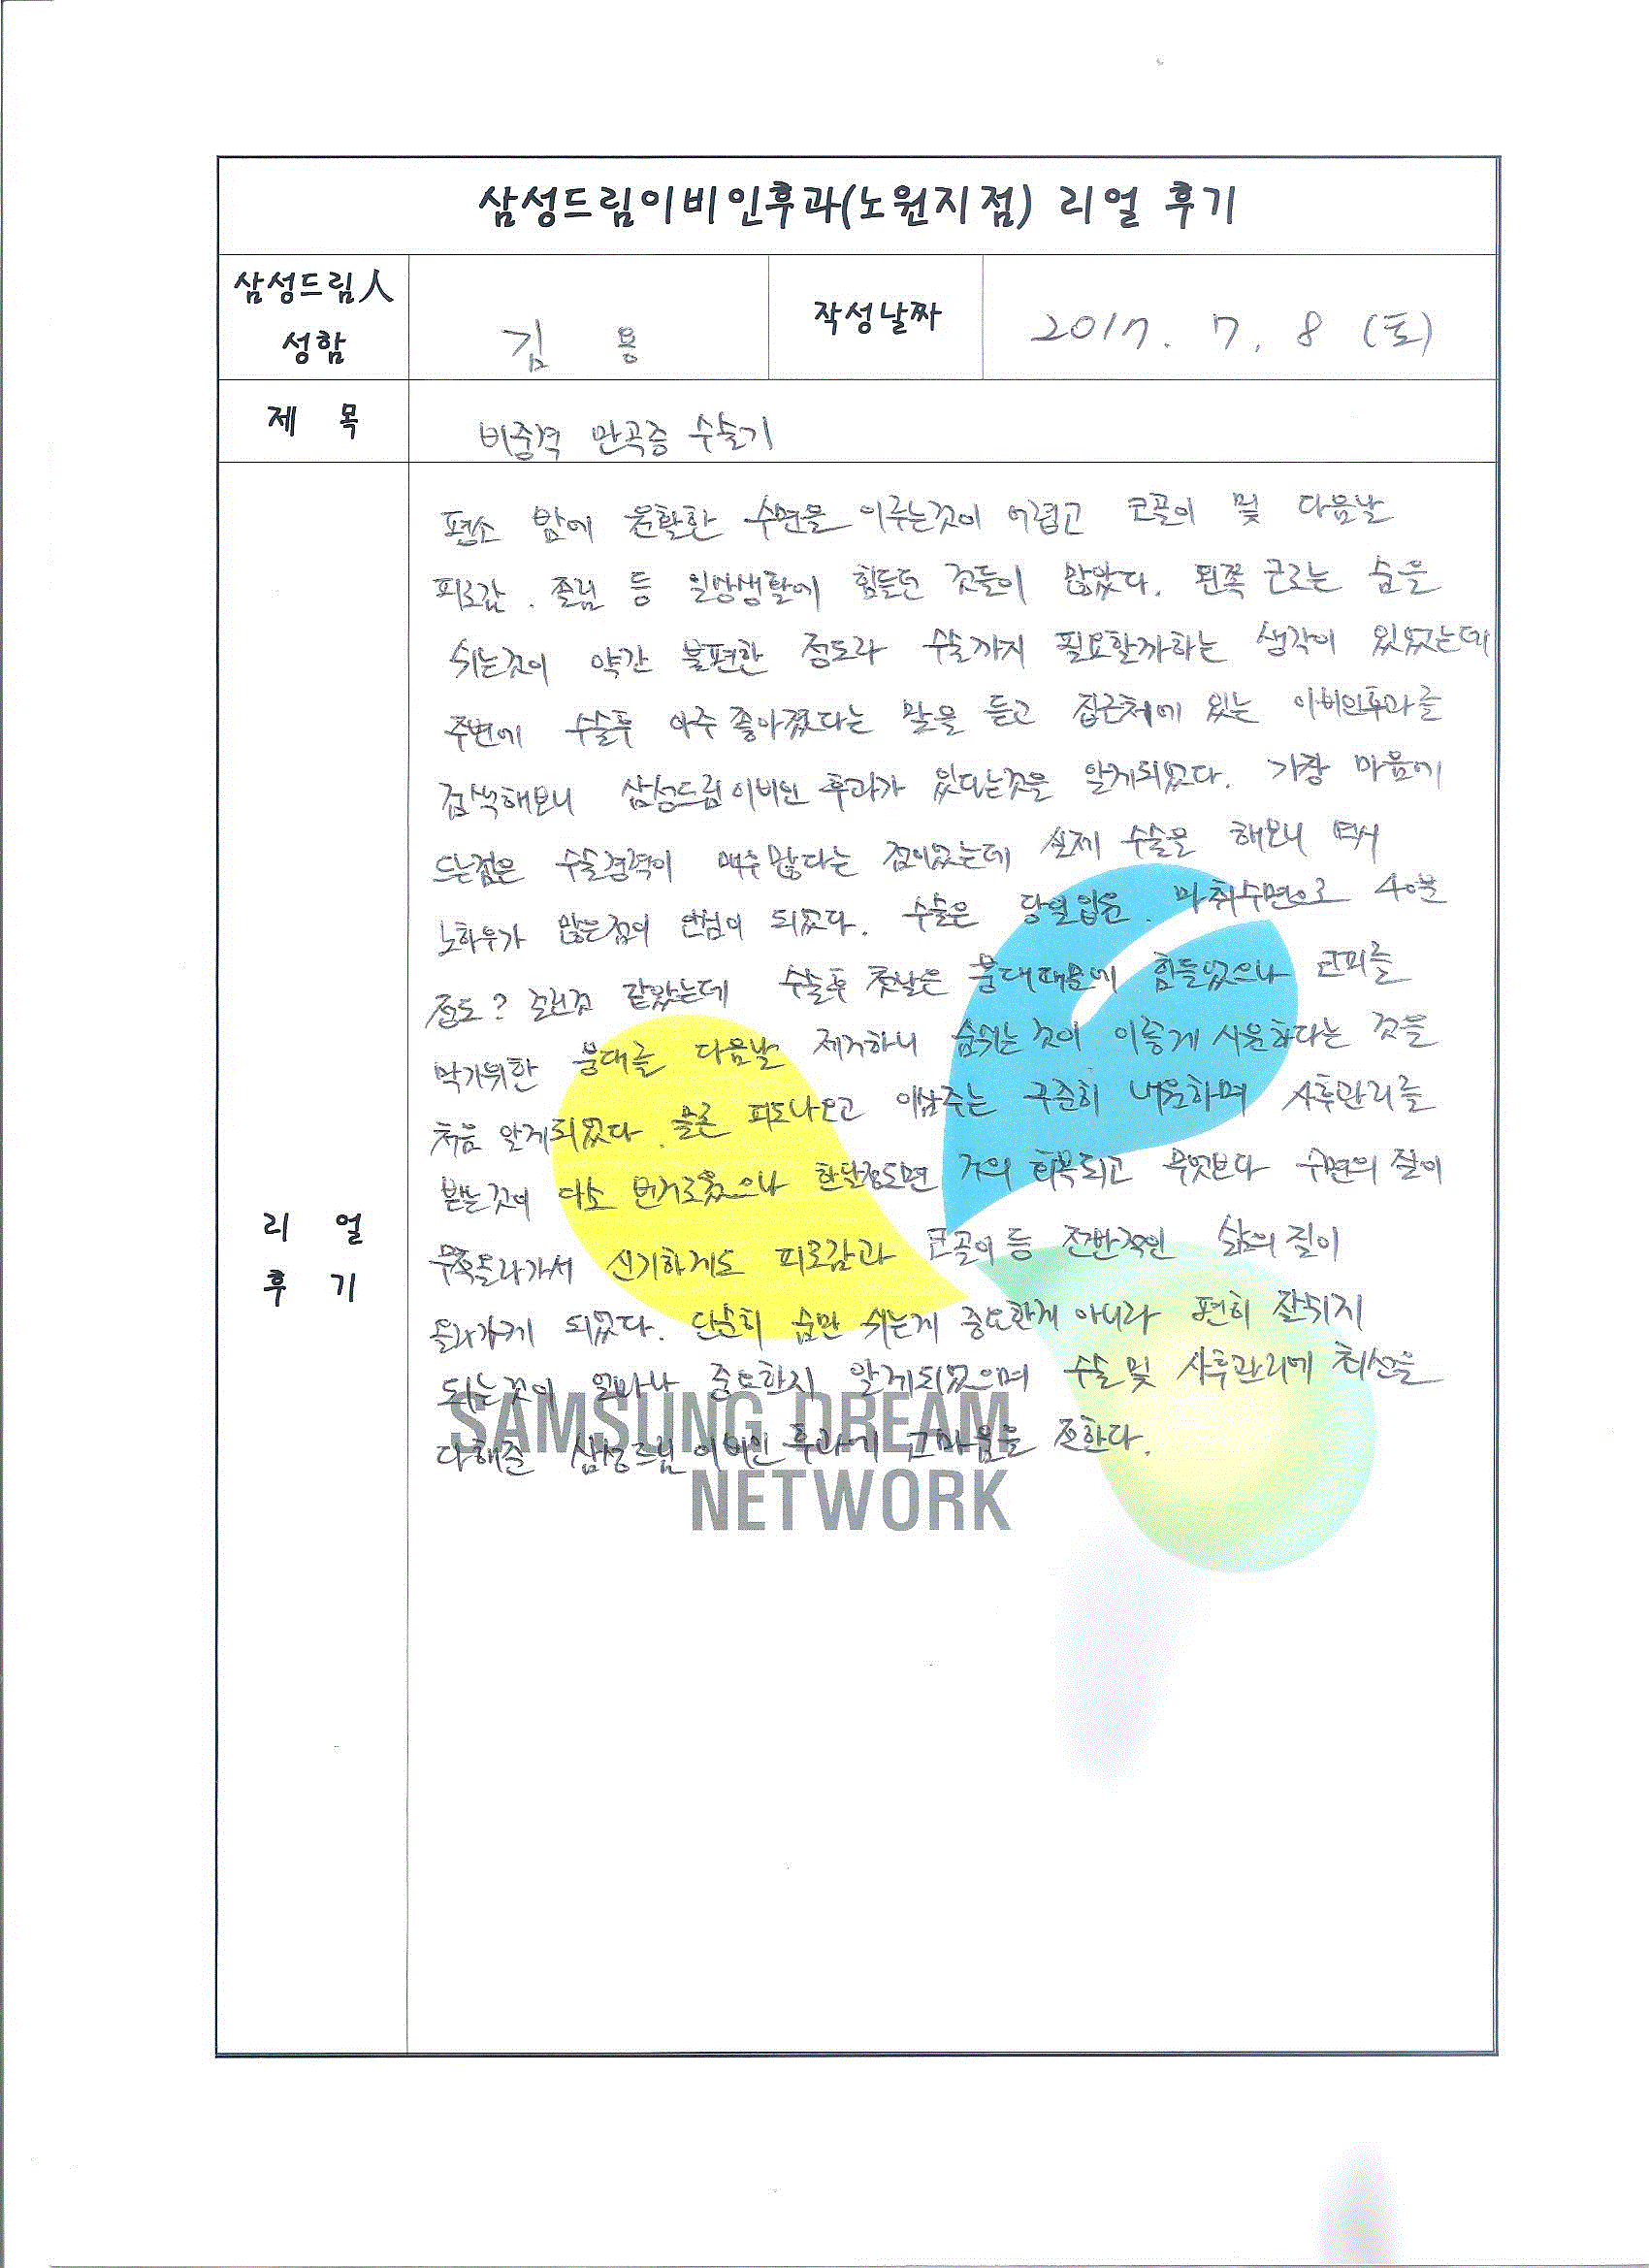 삼성드림이비인후과(노원지점) 리얼 후기
삼성드림人
성함
김 용
작성날짜
2017. 7. 8 (토)
제 목
비중격 만곡증 수술기
평소 밤에 원활한 수면을 이루는것이 어렵고 코골이 및 다음날
피로감. 졸림 등 일상생활에 힘들던 것들이 많았다. 왼쪽 코로는 숨을
쉬는것이 약간 불편한 정도라 수술까지 필요할까하는 생각이 있었는데
주변에 수술후 아주 좋아졌다는 말을 듣고 집근처에 있는 이비인후과를
검색해보니 삼성드림이비인 후과가 있다는것을 알게되었다. 가장 마음에
드는점은 수술경력이 매우 많다는 점이었는데 실제 수술을 해보니 역시
노하우가 많은점이 안심이 되었다. 수술은 당일입원. 마취수면으로 40분
정도? 걸린것 같았는데 수술후 첫날은 붕대때문에 힘들었으나 코피를
막기위한 붕대를 다음날 제거하니 숨쉬는 것이 이렇게 시원하다는 것을
처음 알게되었다. 물론 피도나오고 이삼주는 꾸준히 내원하며 사후관리를
받는것이 다소 번거로웠으나 한달정도면 거의 회복되고 무엇보다 수면의 질이
쭉올라가서 신기하게도 피로감과 코골이 등 전반적인 삶의 질이
올라가게 되었다. 단순히 숨만 쉬는게 중요한게 아니라 편히 잘쉬지
되는것이 얼마나 중요한지 알게되었으며 수술 및 사후관리에 최선을
다해준 삼성드림 이비인 후과에 고마움을 전한다.
리 얼
후 기
SAMSUNG DREAM
NETWORK